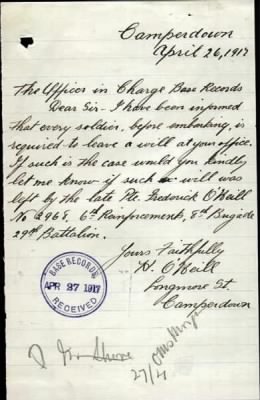 Camperdown
April 26, 1917
The Officer in Charge Base Records
Dear Sir. I have been informed
that every soldier, before embarking, is
required to leave a will at your office.
If such is the case would you kindly
let me know if such a will was
left by the late Pte. Frederick O'Neill
No 2968, 6th Reinforcements, 8th Brigade
29th Battalion.
Yours Faithfully
H. O'Neill
Longmore St.
Camperdown
BASE RECORDS
APR 27 1917
RECEIVED
27/4